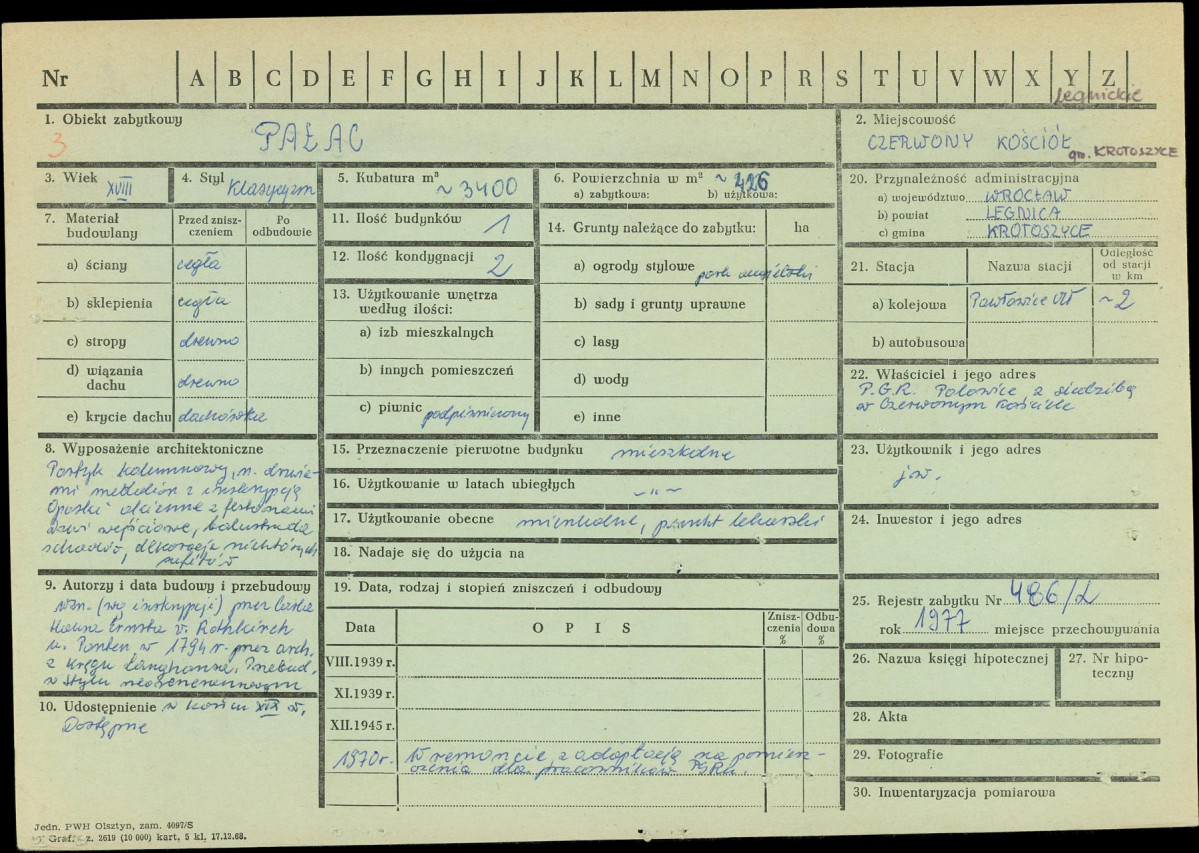 Nr A B C D E F G H I J K L M N O P R S T U V W X Y Z
legnickie
1. Obiekt zabytkowy
3
PAŁAC
2. Miejscowość
CZERWONY KOŚCIÓŁ
gm. KROTOSZYCE
3. Wiek XVIII
4. Styl Klasycyzm
5. Kubatura m³ ~ 3400
6. Powierzchnia w m² ~ 426
a) zabytkowa: b) użytkowa:
20. Przynależność administracyjna
a) województwo WROCŁAW
b) powiat LEGNICA
c) gmina KROTOSZYCE
7. Materiał budowlany
Przed zniszczeniem
Po odbudowie
a) ściany cegła
b) sklepienia cegła
c) stropy drewno
d) wiązania dachu drewno
e) krycie dachu dachówka
11. Ilość budynków 1
12. Ilość kondygnacji 2
13. Użytkowanie wnętrza
według ilości:
a) izb mieszkalnych
b) innych pomieszczeń
c) piwnic podpiwniczony
14. Grunty należące do zabytku: ha
a) ogrody stylowe park angielski
b) sady i grunty uprawne
c) lasy
d) wody
e) inne
21. Stacja Nazwa stacji Odległość od stacji w km
a) kolejowa Pawłowice Wł ~2
b) autobusowa
22. Właściciel i jego adres
P.G.R. Polowice z siedzibą
w Czerwonym Kościele
8. Wyposażenie architektoniczne
Portyk kolumnowy, n. drzwia-
mi medalion z inskrypcją
Opaski okienne z festonami
drzwi wejściowe, balustrada
schodów, dekoracja niektórych
sufitów
15. Przeznaczenie pierwotne budynku mieszkalne
16. Użytkowanie w latach ubiegłych – „ –
17. Użytkowanie obecne mieszkalne, punkt lekarski
18. Nadaje się do użycia na
23. Użytkownik i jego adres
jw.
24. Inwestor i jego adres
9. Autorzy i data budowy i przebudowy
wzn. (wg inskrypcji) przez
Hansa Ernsta v. Rothkirch
u. Panten w 1794 r. przez arch.
z kręgu Langhansa. Przebud.
w stylu neorenesansowym
w końcu XIX w.
10. Udostępnienie
Dostępne
19. Data, rodzaj i stopień zniszczeń i odbudowy
Data OPIS Zniszczenia % Odbudowa %
VIII.1939 r.
XI.1939 r.
XII.1945 r.
1970 r. W remoncie z adaptacją na pomiesz-
czenia dla pracowników PGRu.
25. Rejestr zabytku Nr 486/L
rok 1977 miejsce przechowywania
26. Nazwa księgi hipotecznej
27. Nr hipoteczny
28. Akta
29. Fotografie
30. Inwentaryzacja pomiarowa
Jedn. PWH Olsztyn, zam. 4097/S
Graf. z. 2619 (10 000) kart. 5 kl. 17.12.68.